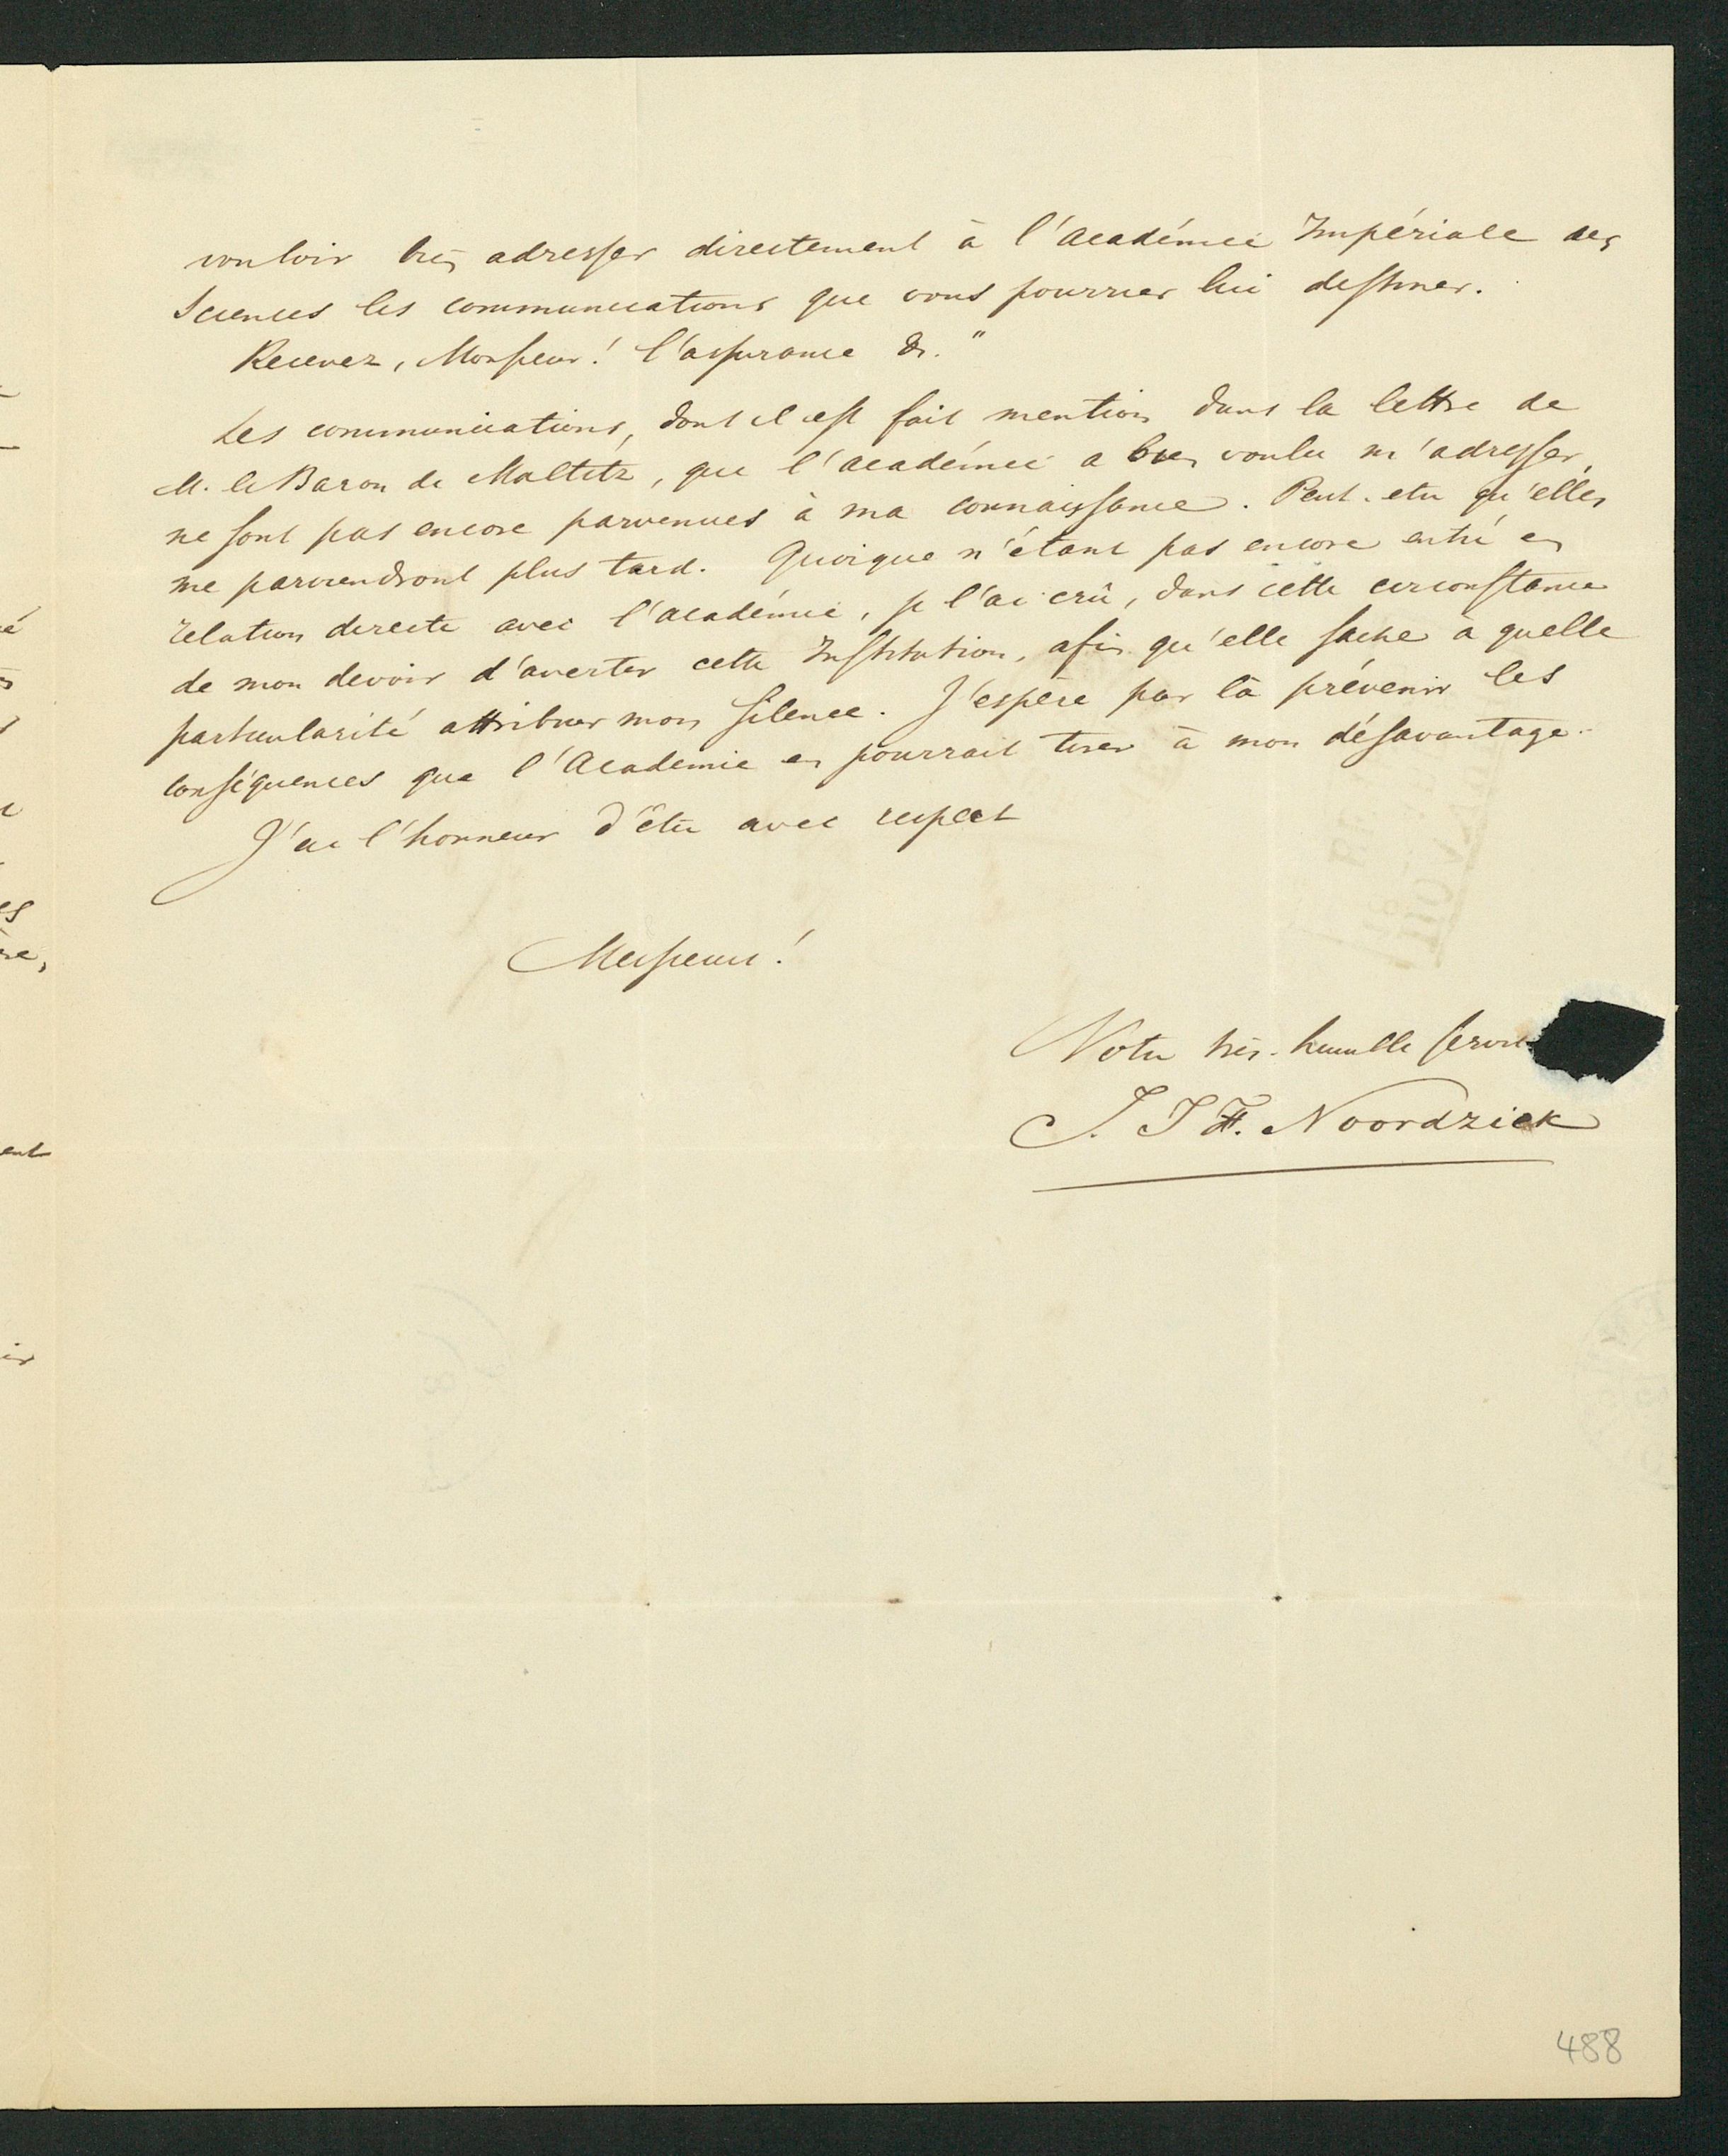 vouloir bien adresser directement à l'Académie Impériale des
Sciences les communications que vous pourriez lui destiner.
Recevez, Monsieur! l'assurance &."
Les communications, dont il est fait mention dans la lettre de
M. le Baron de Maltitz, que l'académie a bien voulu m'adresser,
ne sont pas encore parvenues à ma connaissance. Peut-etre qu'elles
me parviendront plus tard. Quoique n'étant pas encore entré en
relation directe avec l'académie, je l'ai crû, dans cette circonstance
de mon devoir d'avertir cette Institution, afin qu'elle sache à quelle
particularité attribuer mon silence. J'espère par là prévenir les
conséquences que l'Academie en pourrait tirer à mon désavantage.
J'ai l'honneur d'être avec respect
Messieurs!
Votre très-humble servit
J. J. F. Noordziek
488